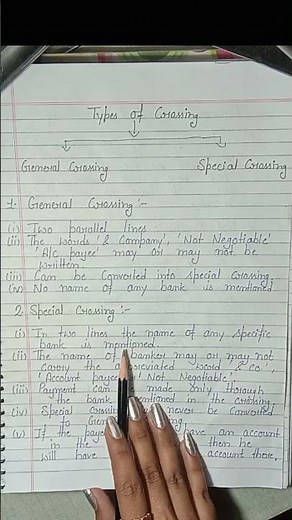 Types of Crossing
General Crossing Special Crossing
1. General Crossing :-
(i) Two parallel lines
(ii) The words '& Company', 'Not Negotiable'
'A/c payee' may or may not be
written.
(iii) Can be Converted into special Crossing.
(iv) No name of any bank is mentioned
2. Special Crossing :-
(i) In two lines the name of any specific
bank is mentioned.
(ii) The name of banker may or may not
carry the abbreviated word, '& Co.',
'Account payee' 'Not Negotiable'.
(iii) Payment can made only through
the bank mentioned in the crossing
(iv) Special Crossing never be Converted
to General
(v) If the payee have an account
in the then he
will have account there,